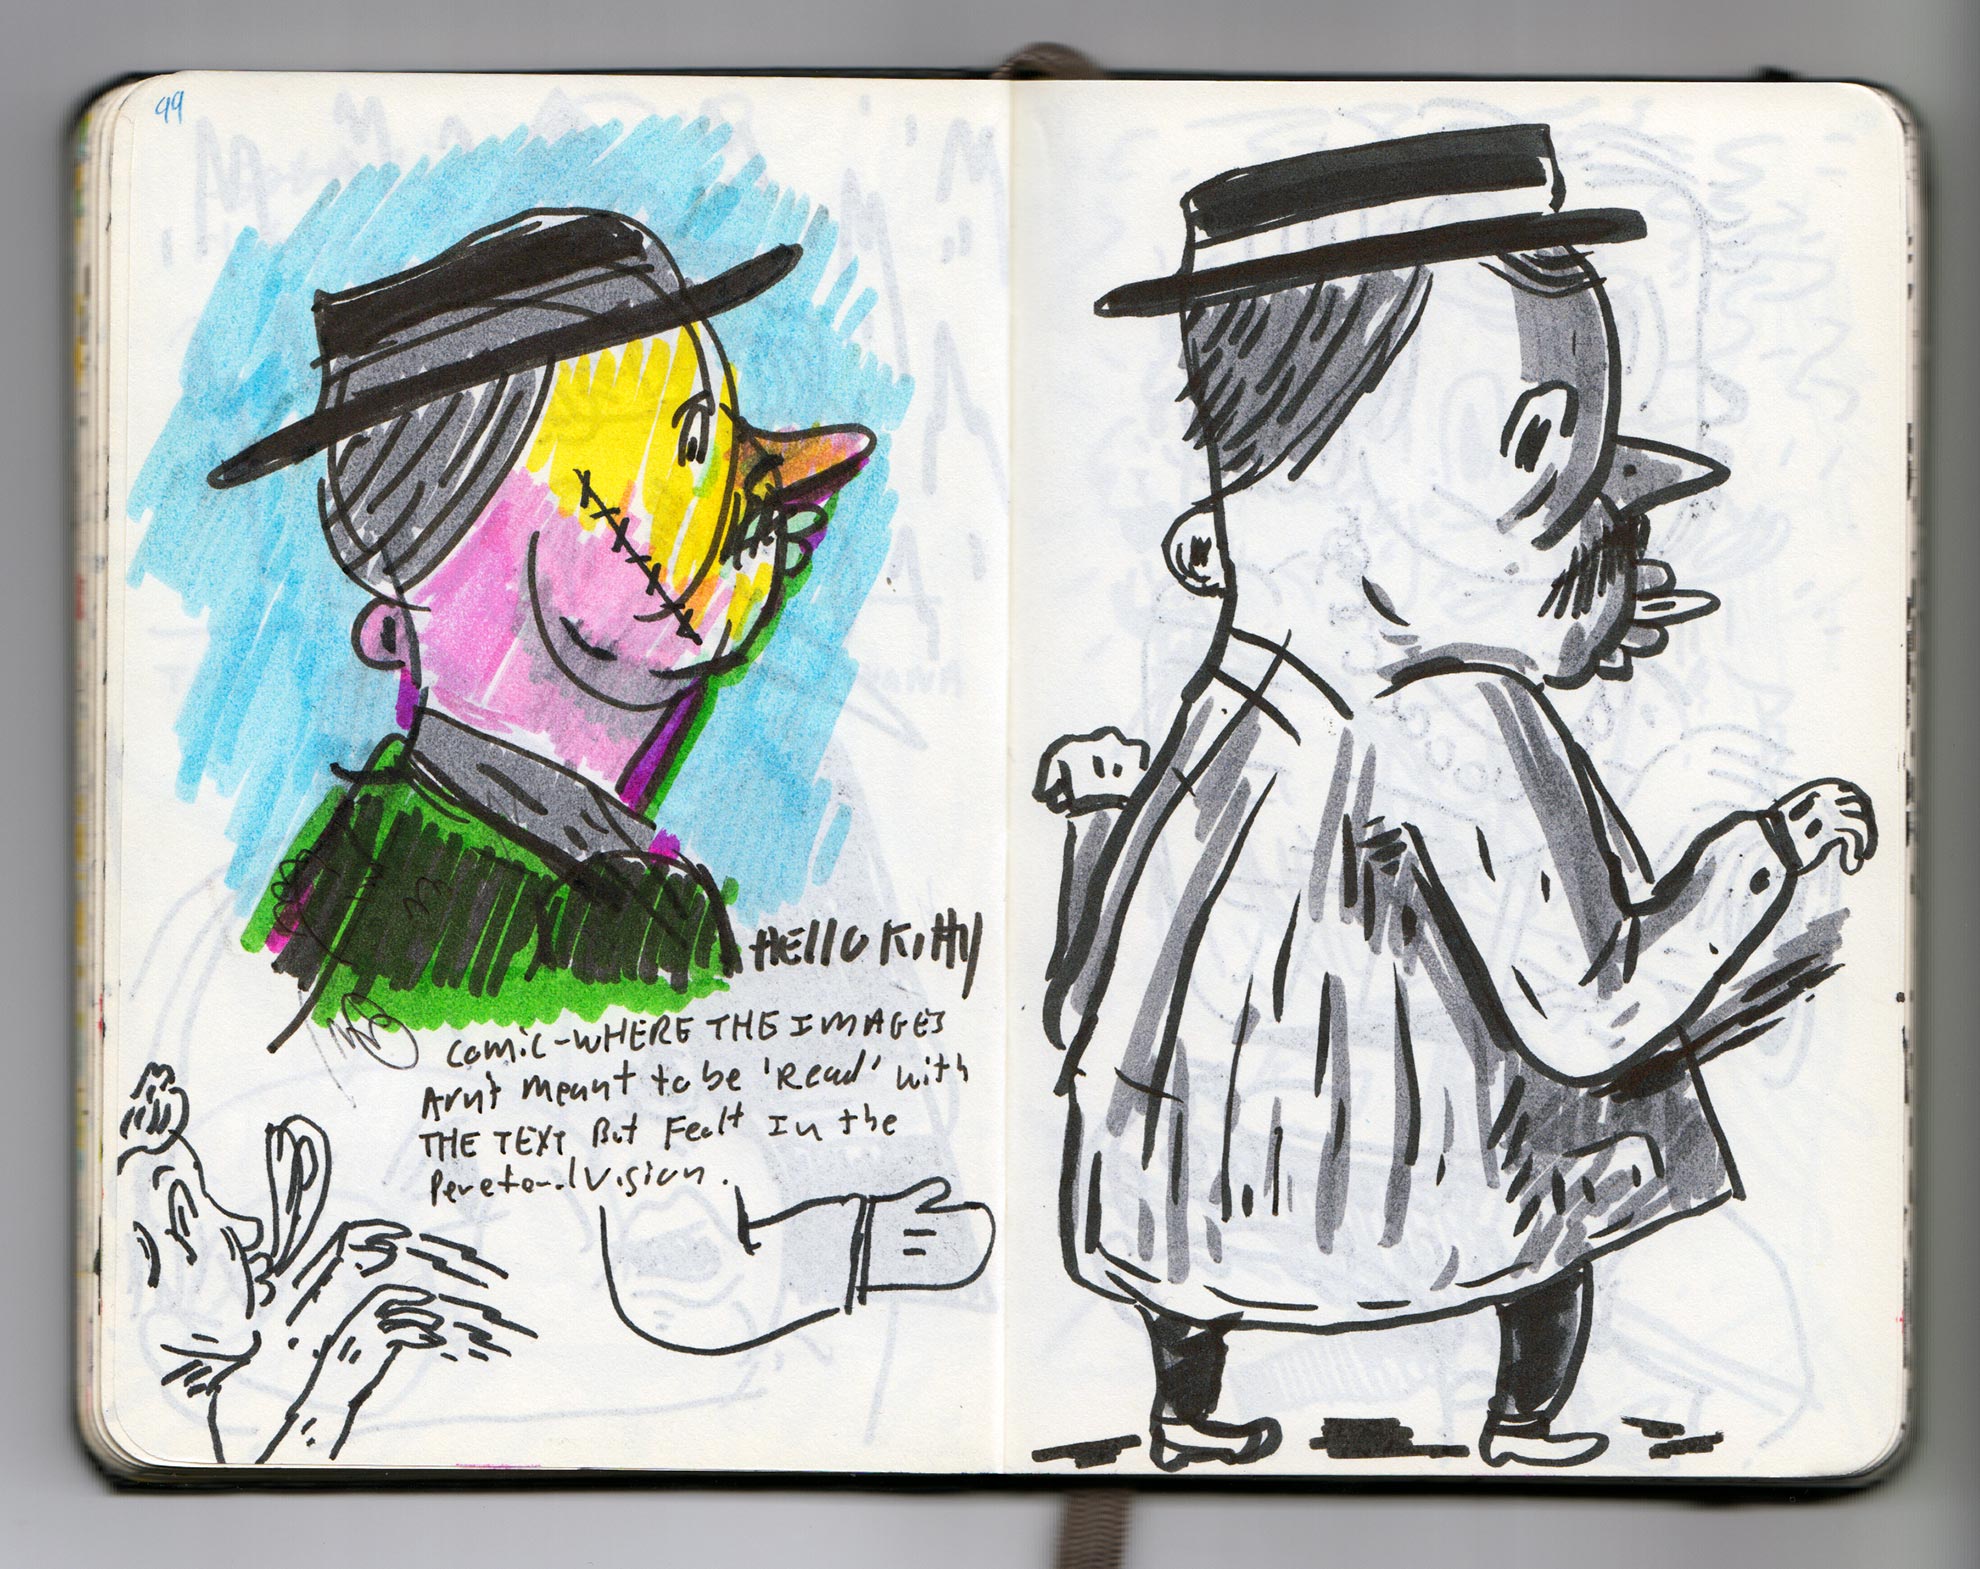 99
HELLO KITTY
COMIC-WHERE THE IMAGES
ARN'T MEANT TO BE 'READ' WITH
THE TEXT BUT FEALT IN THE
PERETORAL VISION.